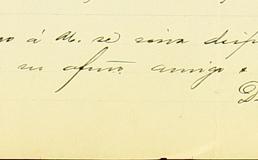 á M. se sirva disp
su afmo. amigo
D